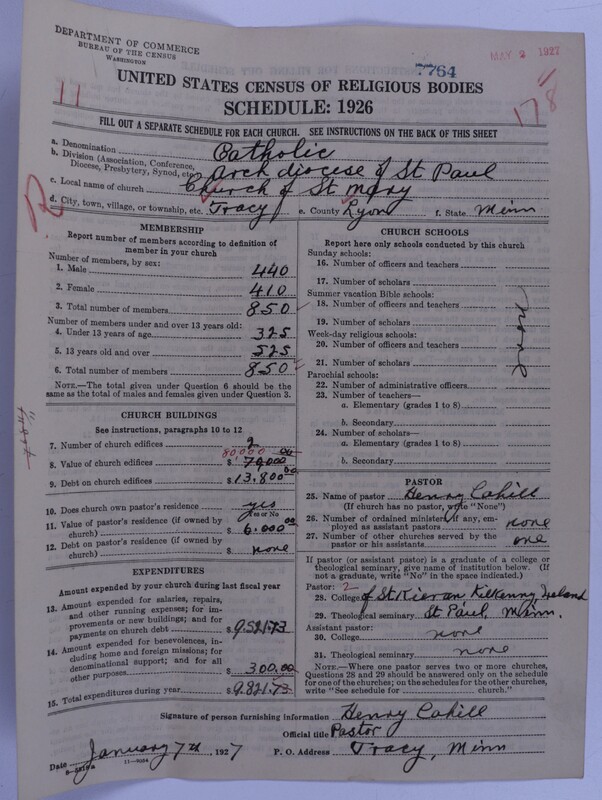 DEPARTMENT OF COMMERCE
BUREAU OF THE CENSUS
WASHINGTON
7764
MAY 2 1927
UNITED STATES CENSUS OF RELIGIOUS BODIES
SCHEDULE: 1926
11
178
FILL OUT A SEPARATE SCHEDULE FOR EACH CHURCH. SEE INSTRUCTIONS ON THE BACK OF THIS SHEET
a. Denomination Catholic
b. Division (Association, Conference, Diocese, Presbytery, Synod, etc. Arch diocese of St Paul
c. Local name of church Church of St Mary
d. City, town, village, or township, etc. Tracy e. County Lyon f. State Minn
MEMBERSHIP
Report number of members according to definition of
member in your church
Number of members, by sex:
1. Male 440
2. Female 410
3. Total number of members 850
Number of members under and over 13 years old:
4. Under 13 years of age 325
5. 13 years old and over 525
6. Total number of members 850
NOTE.—The total given under Question 6 should be
same as the total of males and females given under Question 3.
CHURCH BUILDINGS
See instructions, paragraphs 10 to 12
7. Number of church edifices 2
80,000
8. Value of church edifices $ 70,000 00
9. Debt on church edifices $ 13,800 00
10. Does church own pastor's residence yes
Yes or No
11. Value of pastor's residence (if owned by
church) $ 6,000 00
12. Debt on pastor's residence (if owned by
church) $ none
EXPENDITURES
Amount expended by your church during last fiscal year
13. Amount expended for salaries, repairs,
and other running expenses; for im-
provements or new buildings; and for
payments on church debt $ 9521.73
14. Amount expended for benevolences, in-
cluding home and foreign missions; for
denominational support; and for all
other purposes $ 300.00
15. Total expenditures during year $ 9821.73
CHURCH SCHOOLS
Report here only schools conducted by this church
Sunday schools:
16. Number of officers and teachers
17. Number of scholars
Summer vacation Bible schools:
18. Number of officers and teachers
19. Number of scholars
Week-day religious schools:
20. Number of officers and teachers
21. Number of scholars
none
Parochial schools:
22. Number of administrative officers
23. Number of teachers—
a. Elementary (grades 1 to 8)
b. Secondary
24. Number of scholars—
a. Elementary (grades 1 to 8)
b. Secondary
PASTOR
25. Name of pastor Henry Cahill
(If church has no pastor, write "None")
26. Number of ordained ministers, if any, em-
ployed as assistant pastors none
27. Number of other churches served by the
pastor or his assistants one
If pastor (or assistant pastor) is a graduate of a college or
theological seminary, give name of institution below. (If
not a graduate, write "No" in the space indicated.)
Pastor: 2
28. College of St Kieran Kilkenny, Ireland
29. Theological seminary St Paul, Minn.
Assistant pastor:
30. College none
31. Theological seminary none
NOTE.—Where one pastor serves two or more churches,
Questions 28 and 29 should be answered only on the schedule
for one of the churches; on the schedules for the other churches,
write "See schedule for church."
Signature of person furnishing information Henry Cahill
Official title Pastor
Date January 7th, 1927 P. O. Address Tracy, Minn